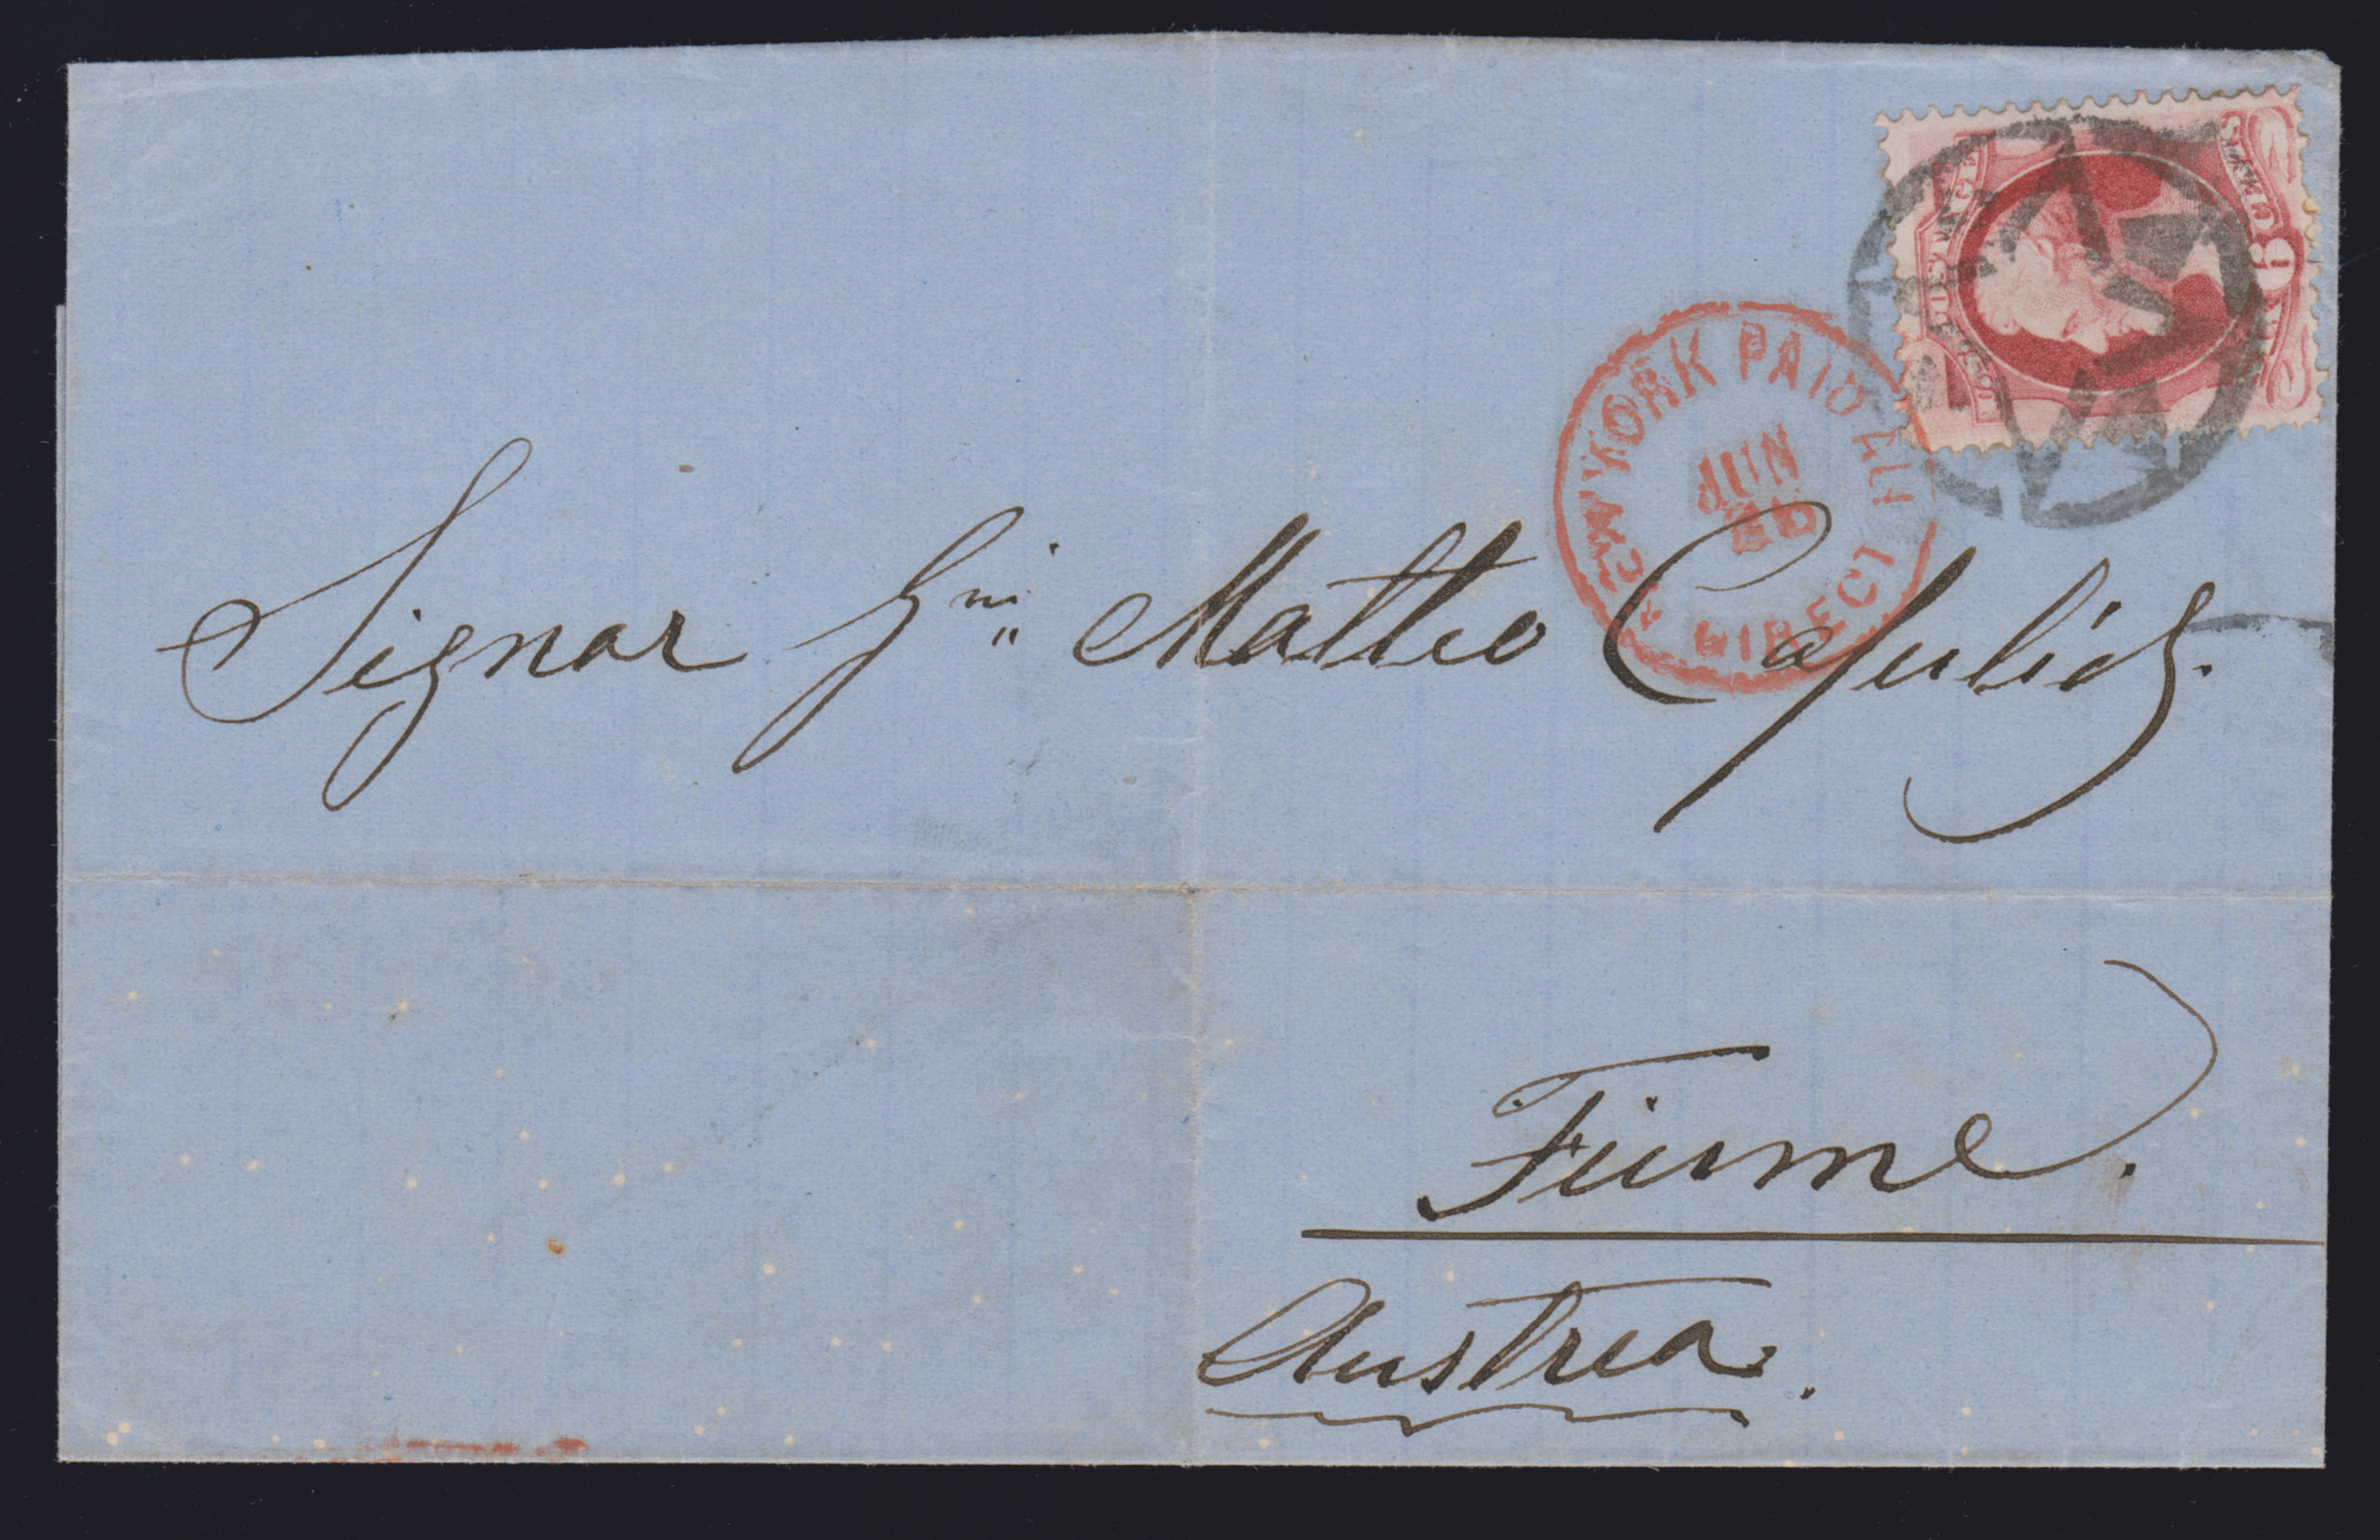 U.S. POSTAGE
6
CENTS
NEW YORK PAID ALL
JUN
DIRECT
Signor Gm. Matteo
Fiume.
Austria.